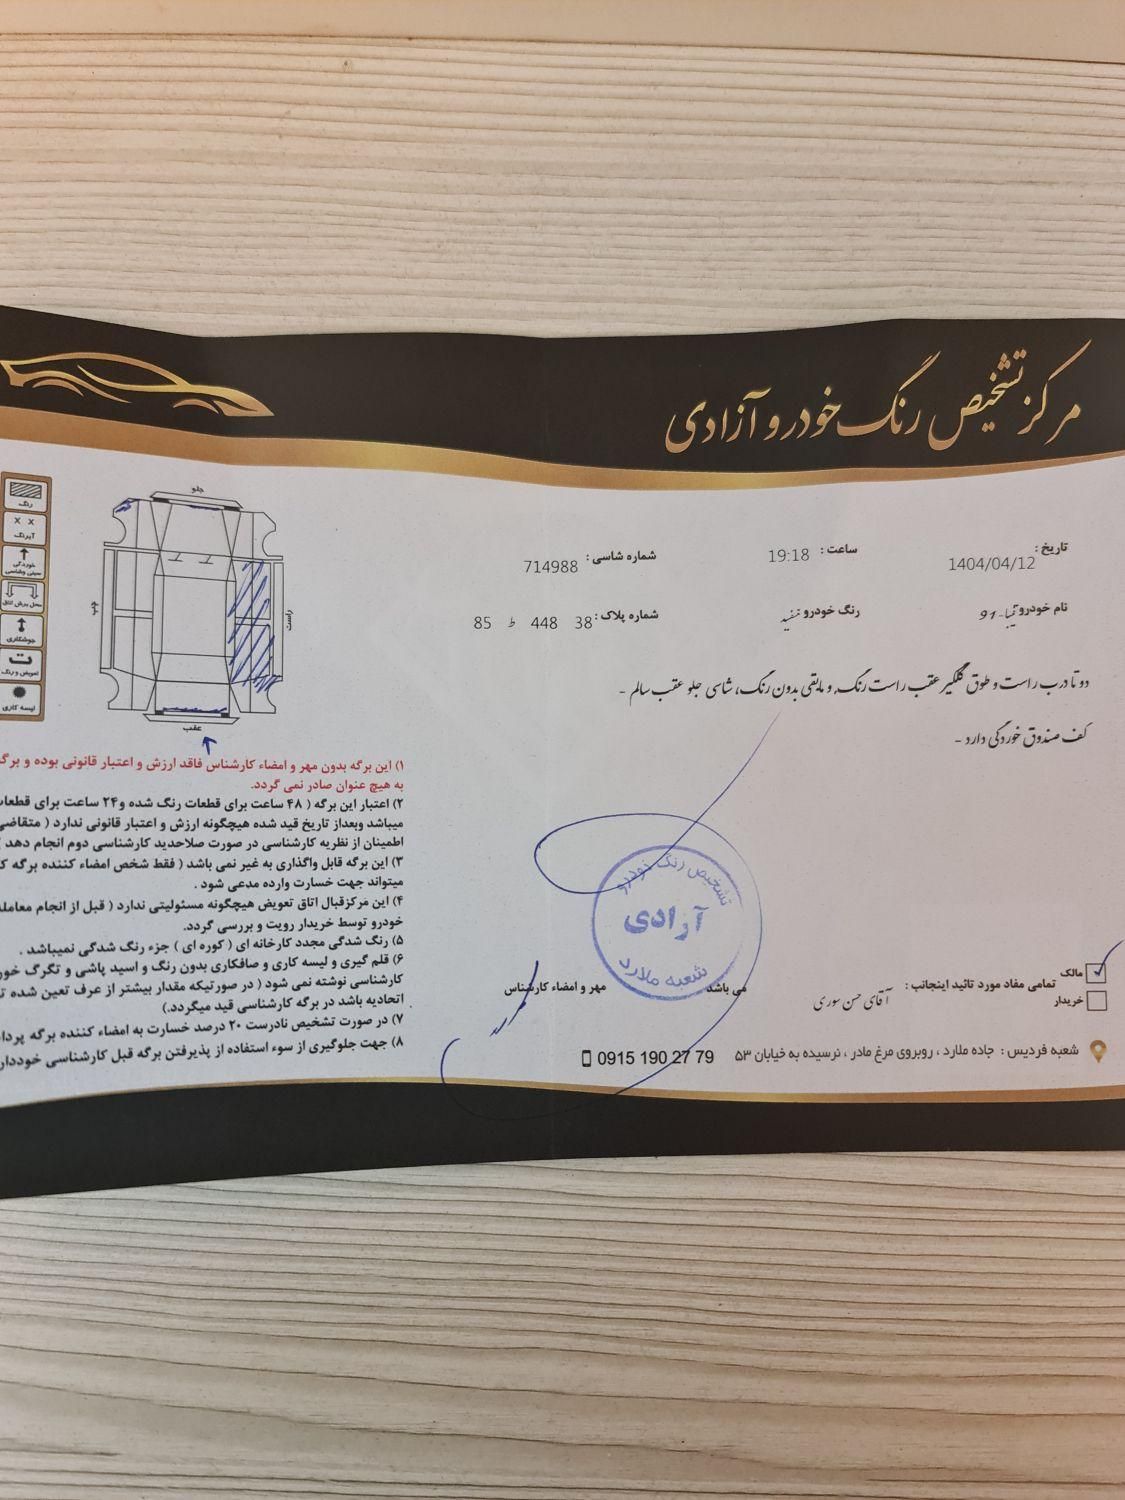 مرکز تشخیص رنگ خودرو آزادی
تاریخ : 1404/04/12
ساعت : 19:18
شماره شاسی : 714988
نام خودرو تیبا-91
رنگ خودرو سفید
شماره پلاک : 38 448 ط 85
دو تا درب راست و طوق گلگیر عقب راست رنگ، و مابقی بدون رنگ، شاسی جلو عقب سالم -
کف صندوق خوردگی دارد -
جلو
راست
چپ
عقب
رنگ
x x
آبرنگ
خوردگی
سینی وشاسی
محل برش اتاق
جوشکاری
ت
تعویض و رنگ
لیسه کاری
۱) این برگه بدون مهر و امضاء کارشناس فاقد ارزش و اعتبار قانونی بوده و برگ
به هیچ عنوان صادر نمی گردد.
۲) اعتبار این برگه ( ۴۸ ساعت برای قطعات رنگ شده و۲۴ ساعت برای قطعات
میباشد وبعداز تاریخ قید شده هیچگونه ارزش و اعتبار قانونی ندارد ( متقاضی
اطمینان از نظریه کارشناسی در صورت صلاحدید کارشناسی دوم انجام دهد
۳) این برگه قابل واگذاری به غیر نمی باشد ( فقط شخص امضاء کننده برگه ک
میتواند جهت خسارت وارده مدعی شود .
۴) این مرکزقبال اتاق تعویض هیچگونه مسئولیتی ندارد ( قبل از انجام معامله
خودرو توسط خریدار رویت و بررسی گردد.
۵) رنگ شدگی مجدد کارخانه ای ( کوره ای ) جزء رنگ شدگی نمیباشد .
۶) قلم گیری و لیسه کاری و صافکاری بدون رنگ و اسید پاشی و تگرگ خور
کارشناسی نوشته نمی شود ( در صورتیکه مقدار بیشتر از عرف تعین شده ت
اتحادیه باشد در برگه کارشناسی قید میگردد.)
۷) در صورت تشخیص نادرست ۲۰ درصد خسارت به امضاء کننده برگه پردا
۸) جهت جلوگیری از سوء استفاده از پذیرفتن برگه قبل کارشناسی خوددار
تشخیص رنگ خودرو
آزادی
شعبه ملارد
مالک
خریدار
تمامی مفاد مورد تائید اینجانب : آقای حسن سوری می باشد
مهر و امضاء کارشناس
شعبه فردیس : جاده ملارد ، روبروی مرغ مادر ، نرسیده به خیابان ۵۳
0915 190 27 79